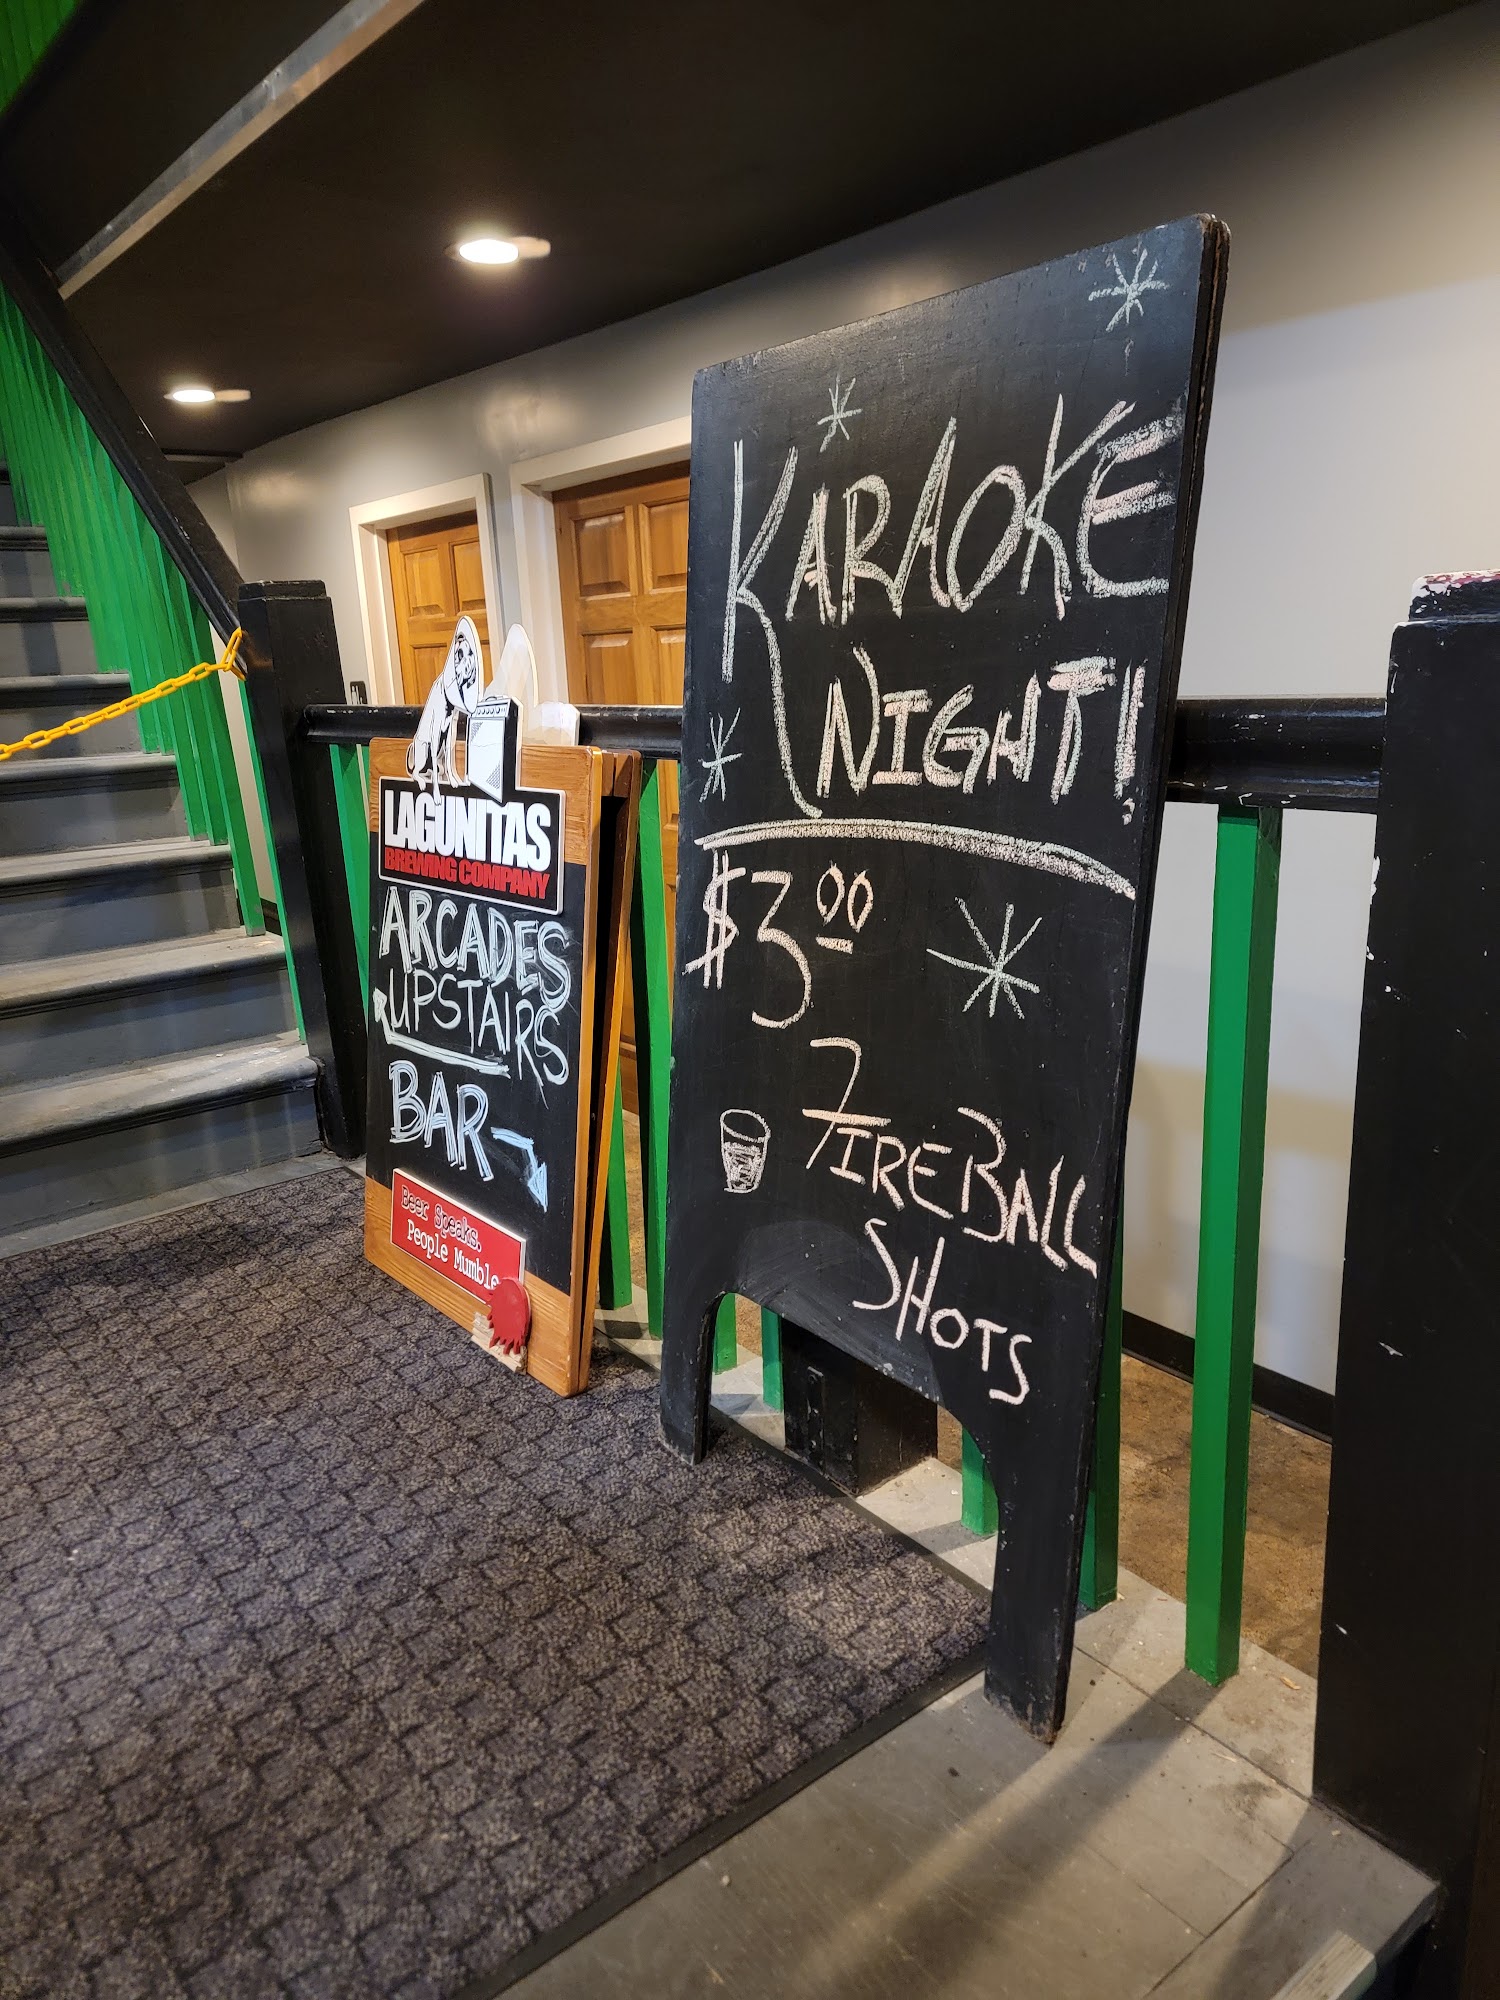 LAGUNITAS
BREWING COMPANY
ARCADES
UPSTAIRS
BAR
Beer Speaks.
People Mumble
KARAOKE
NIGHT!
$3.00
FIREBALL
SHOTS